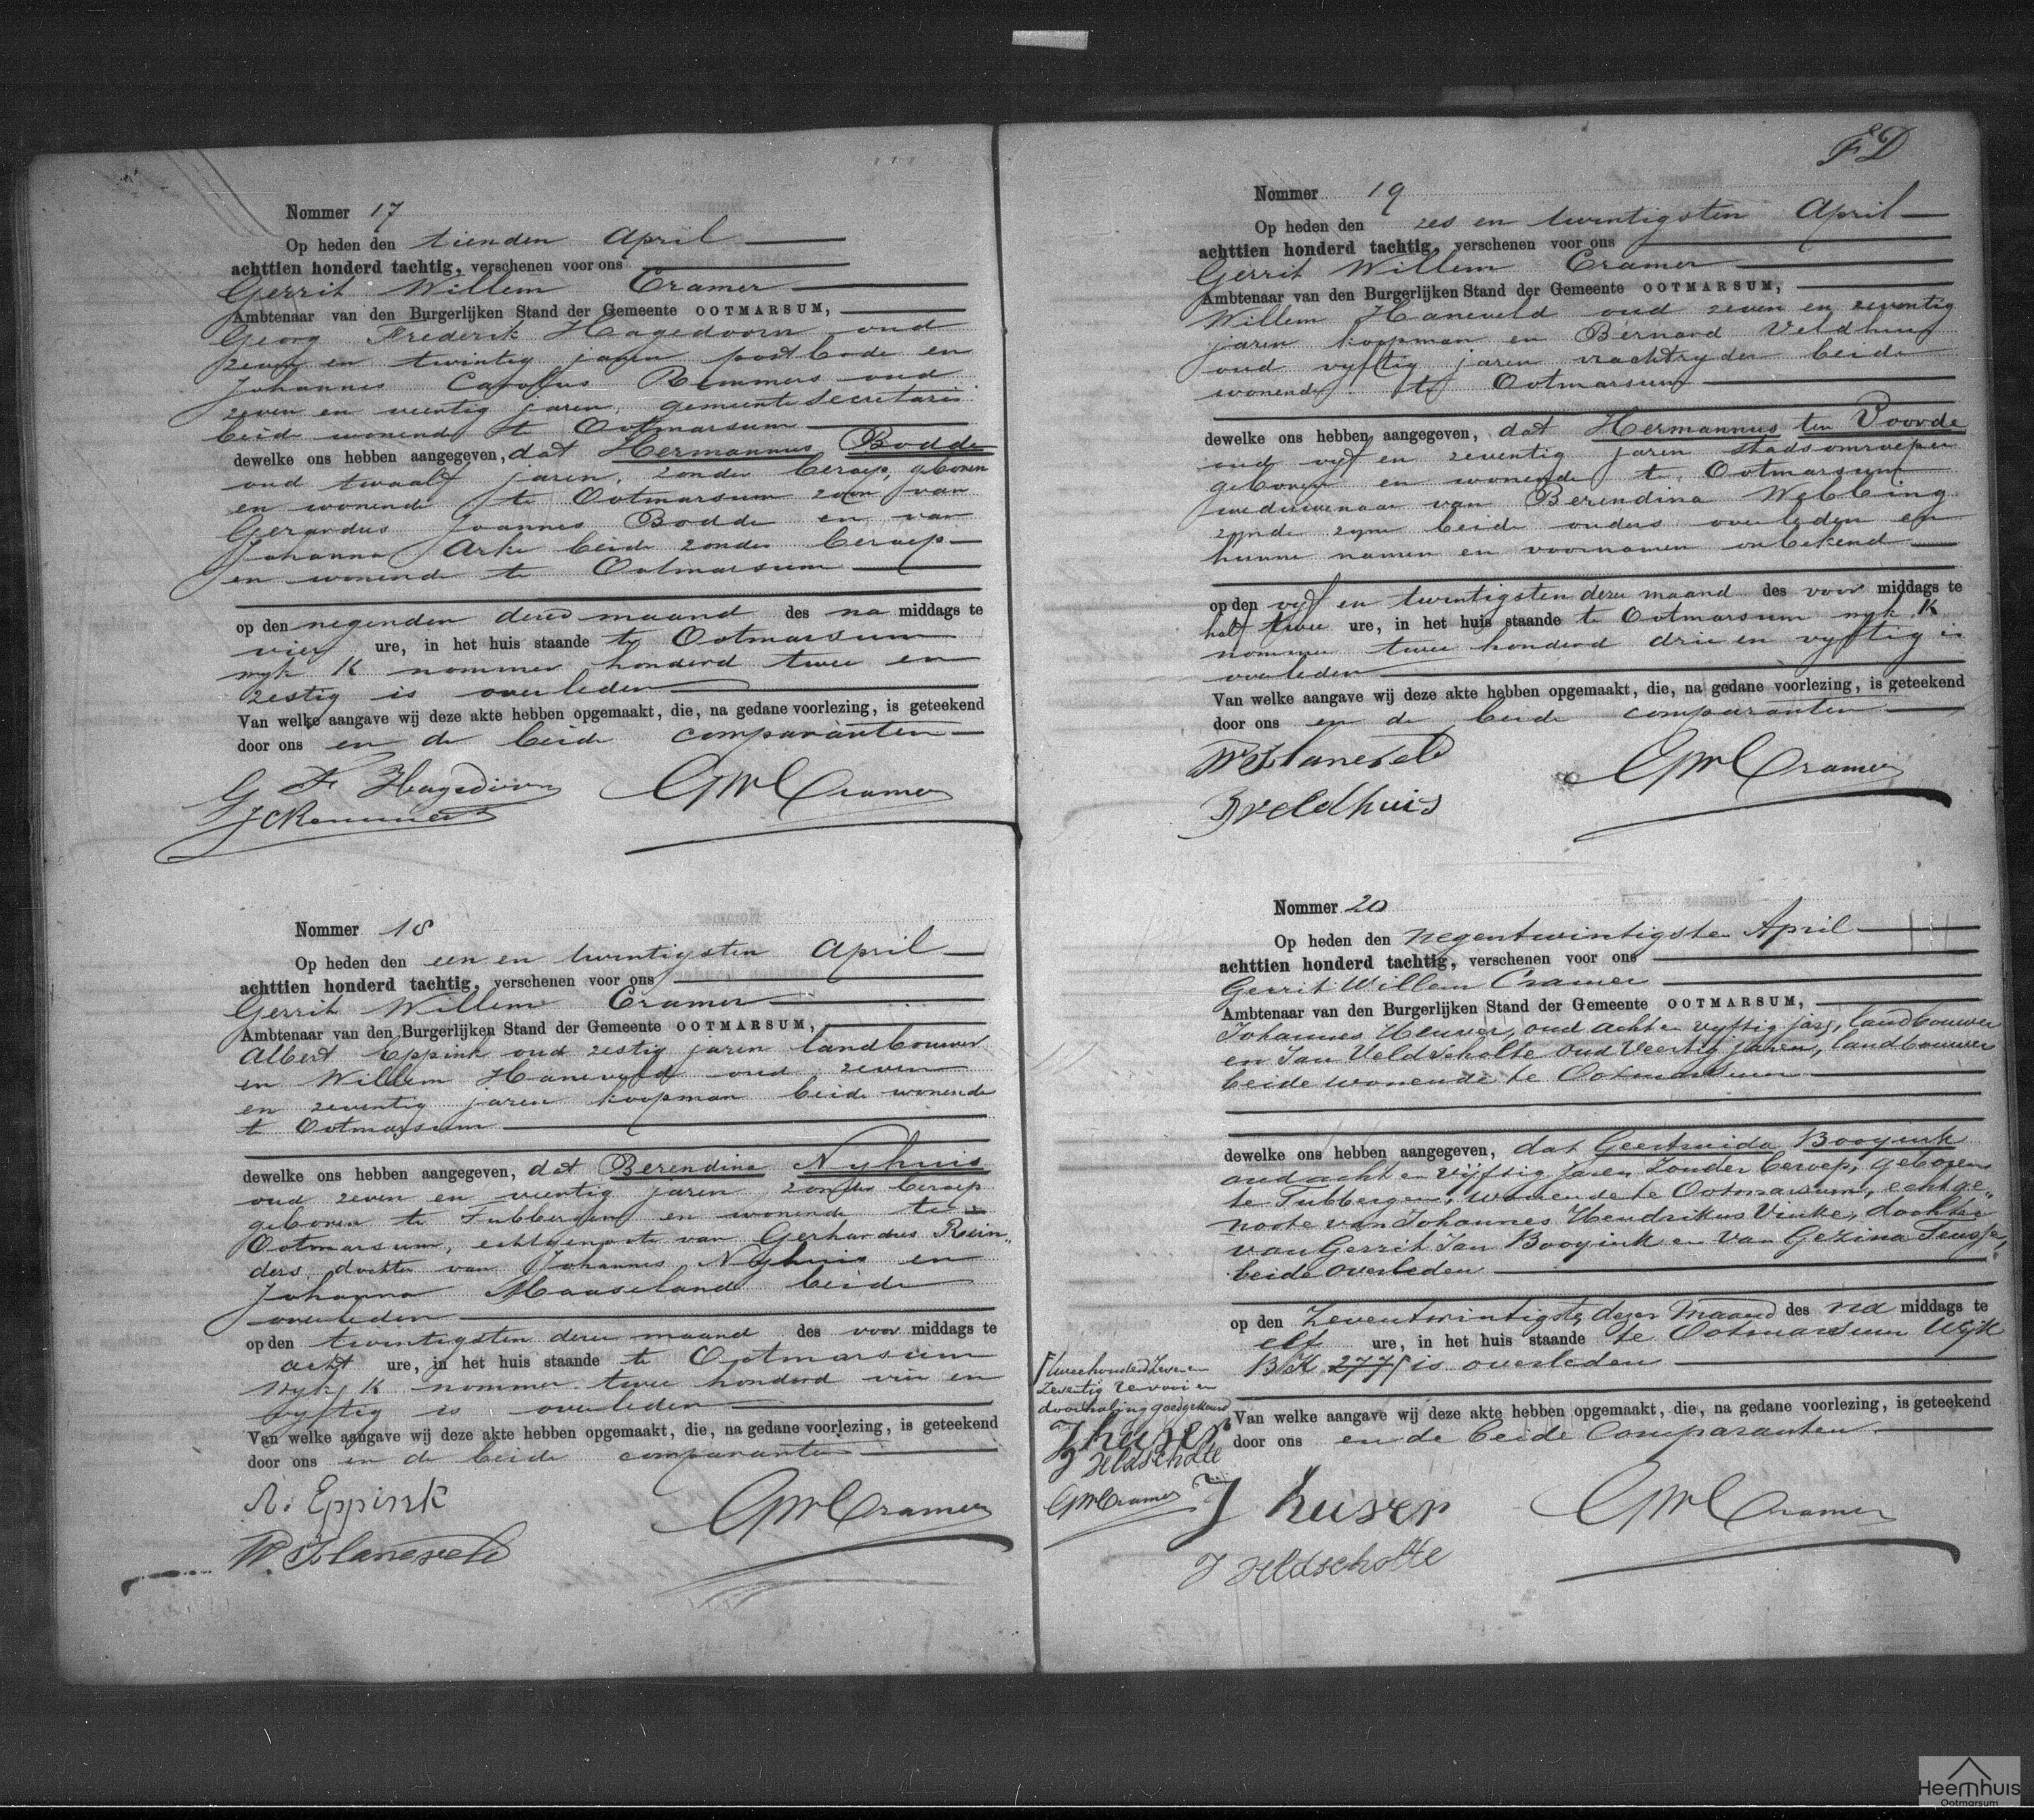 Nommer 17
Op heden den tienden April
achttien honderd tachtig, verschenen voor ons
Gerrit Willem Cramer
Ambtenaar van den Burgerlijken Stand der Gemeente OOTMARSUM,
Georg Frederik Hagedoorn oud
zeven en twintig jaren postbode en
Johannes Carolus Remmers oud
zeven en veertig jaren, gemeente secretaris
beide wonende te Ootmarsum
dewelke ons hebben aangegeven, dat Hermannus Bodde
oud twaalf jaren, zonder beroep, geboren
en wonende te Ootmarsum zoon van
Gerardus Joannes Bodde en van
Johanna Arke beide zonder beroep
en wonende te Ootmarsum
op den negenden dezer maand des na middags te
vier ure, in het huis staande te Ootmarsum
wyk K nommer honderd twee en
zestig is overleden
Van welke aangave wij deze akte hebben opgemaakt, die, na gedane voorlezing, is geteekend
door ons en de beide comparanten
G F Hagedoorn GWCramer
JCRemmers
Nommer 18
Op heden den een en twintigsten April
achttien honderd tachtig, verschenen voor ons
Gerrit Willem Cramer
Ambtenaar van den Burgerlijken Stand der Gemeente OOTMARSUM,
Albert Eppink oud zestig jaren landbouwer
en Willem Haneveld oud zeven
en zeventig jaren koopman beide wonende
te Ootmarsum
dewelke ons hebben aangegeven, dat Berendina Nyhuis
oud zeven en veertig jaren zonder beroep
geboren te Tubbergen en wonende te
Ootmarsum, echtgenoote van Gerhardus Rein„
ders, dochter van Johannes Nyhuis en
Johanna Maaseland beide
overleden
op den twintigsten dezer maand des voor middags te
acht ure, in het huis staande te Ootmarsum
Wyk K nommer twee honderd vier en
vyftig is overleden
Van welke aangave wij deze akte hebben opgemaakt, die, na gedane voorlezing, is geteekend
door ons en de beide comparanten
A. Eppink GWCramer
W. Haneveld
FD
Nommer 19
Op heden den zes en twintigsten April
achttien honderd tachtig, verschenen voor ons
Gerrit Willem Cramer
Ambtenaar van den Burgerlijken Stand der Gemeente OOTMARSUM,
Willem Haneveld oud zeven en zeventig
jaren koopman en Bernard Veldhuis
oud vyftig jaren vrachtryder beide
wonende te Ootmarsum
dewelke ons hebben aangegeven, dat Hermannus ten Voorde
oud vyf en zeventig jaren stadsomroeper
geboren en wonende te Ootmarsum
weduwenaar van Berendina Webbing
zynde zyne beide ouders overleden en
hunne namen en voornamen onbekend
op den vyf en twintigsten dezer maand des voor middags te
half twee ure, in het huis staande te Ootmarsum wyk K
nommer twee honderd drie en vyftig is
overleden
Van welke aangave wij deze akte hebben opgemaakt, die, na gedane voorlezing, is geteekend
door ons en de beide comparanten
W Haneveld GWCramer
B Veldhuis
Nommer 20
Op heden den negentwintigste April
achttien honderd tachtig, verschenen voor ons
Gerrit Willem Cramer
Ambtenaar van den Burgerlijken Stand der Gemeente OOTMARSUM,
Johannes Heuver, oud acht en vyftig jaar, landbouwer
en Jan Veldscholte oud Veertig jaren, landbouwer
beide wonende te Ootmarsum
dewelke ons hebben aangegeven, dat Geertruida Booyink
oud acht en vijftig jaren zonder beroep, geboren
te Tubbergen, wonende te Ootmarsum, echtge„
noote van Johannes Hendrikus Vinke, dochter
van Gerrit Jan Booyink en van Gezina
beide overleden
op den Zeventwintigste dezer Maand des na middags te
elf ure, in het huis staande te Ootmarsum Wijk
K 277 is overleden
tweehonderd zeven en
zeventig
doorhaling goedgekeurd
J heuver
J Veldscholte
GWCramer
Van welke aangave wij deze akte hebben opgemaakt, die, na gedane voorlezing, is geteekend
door ons en de beide Comparanten
J heuver GWCramer
J Veldscholte
Heemhuis
Ootmarsum